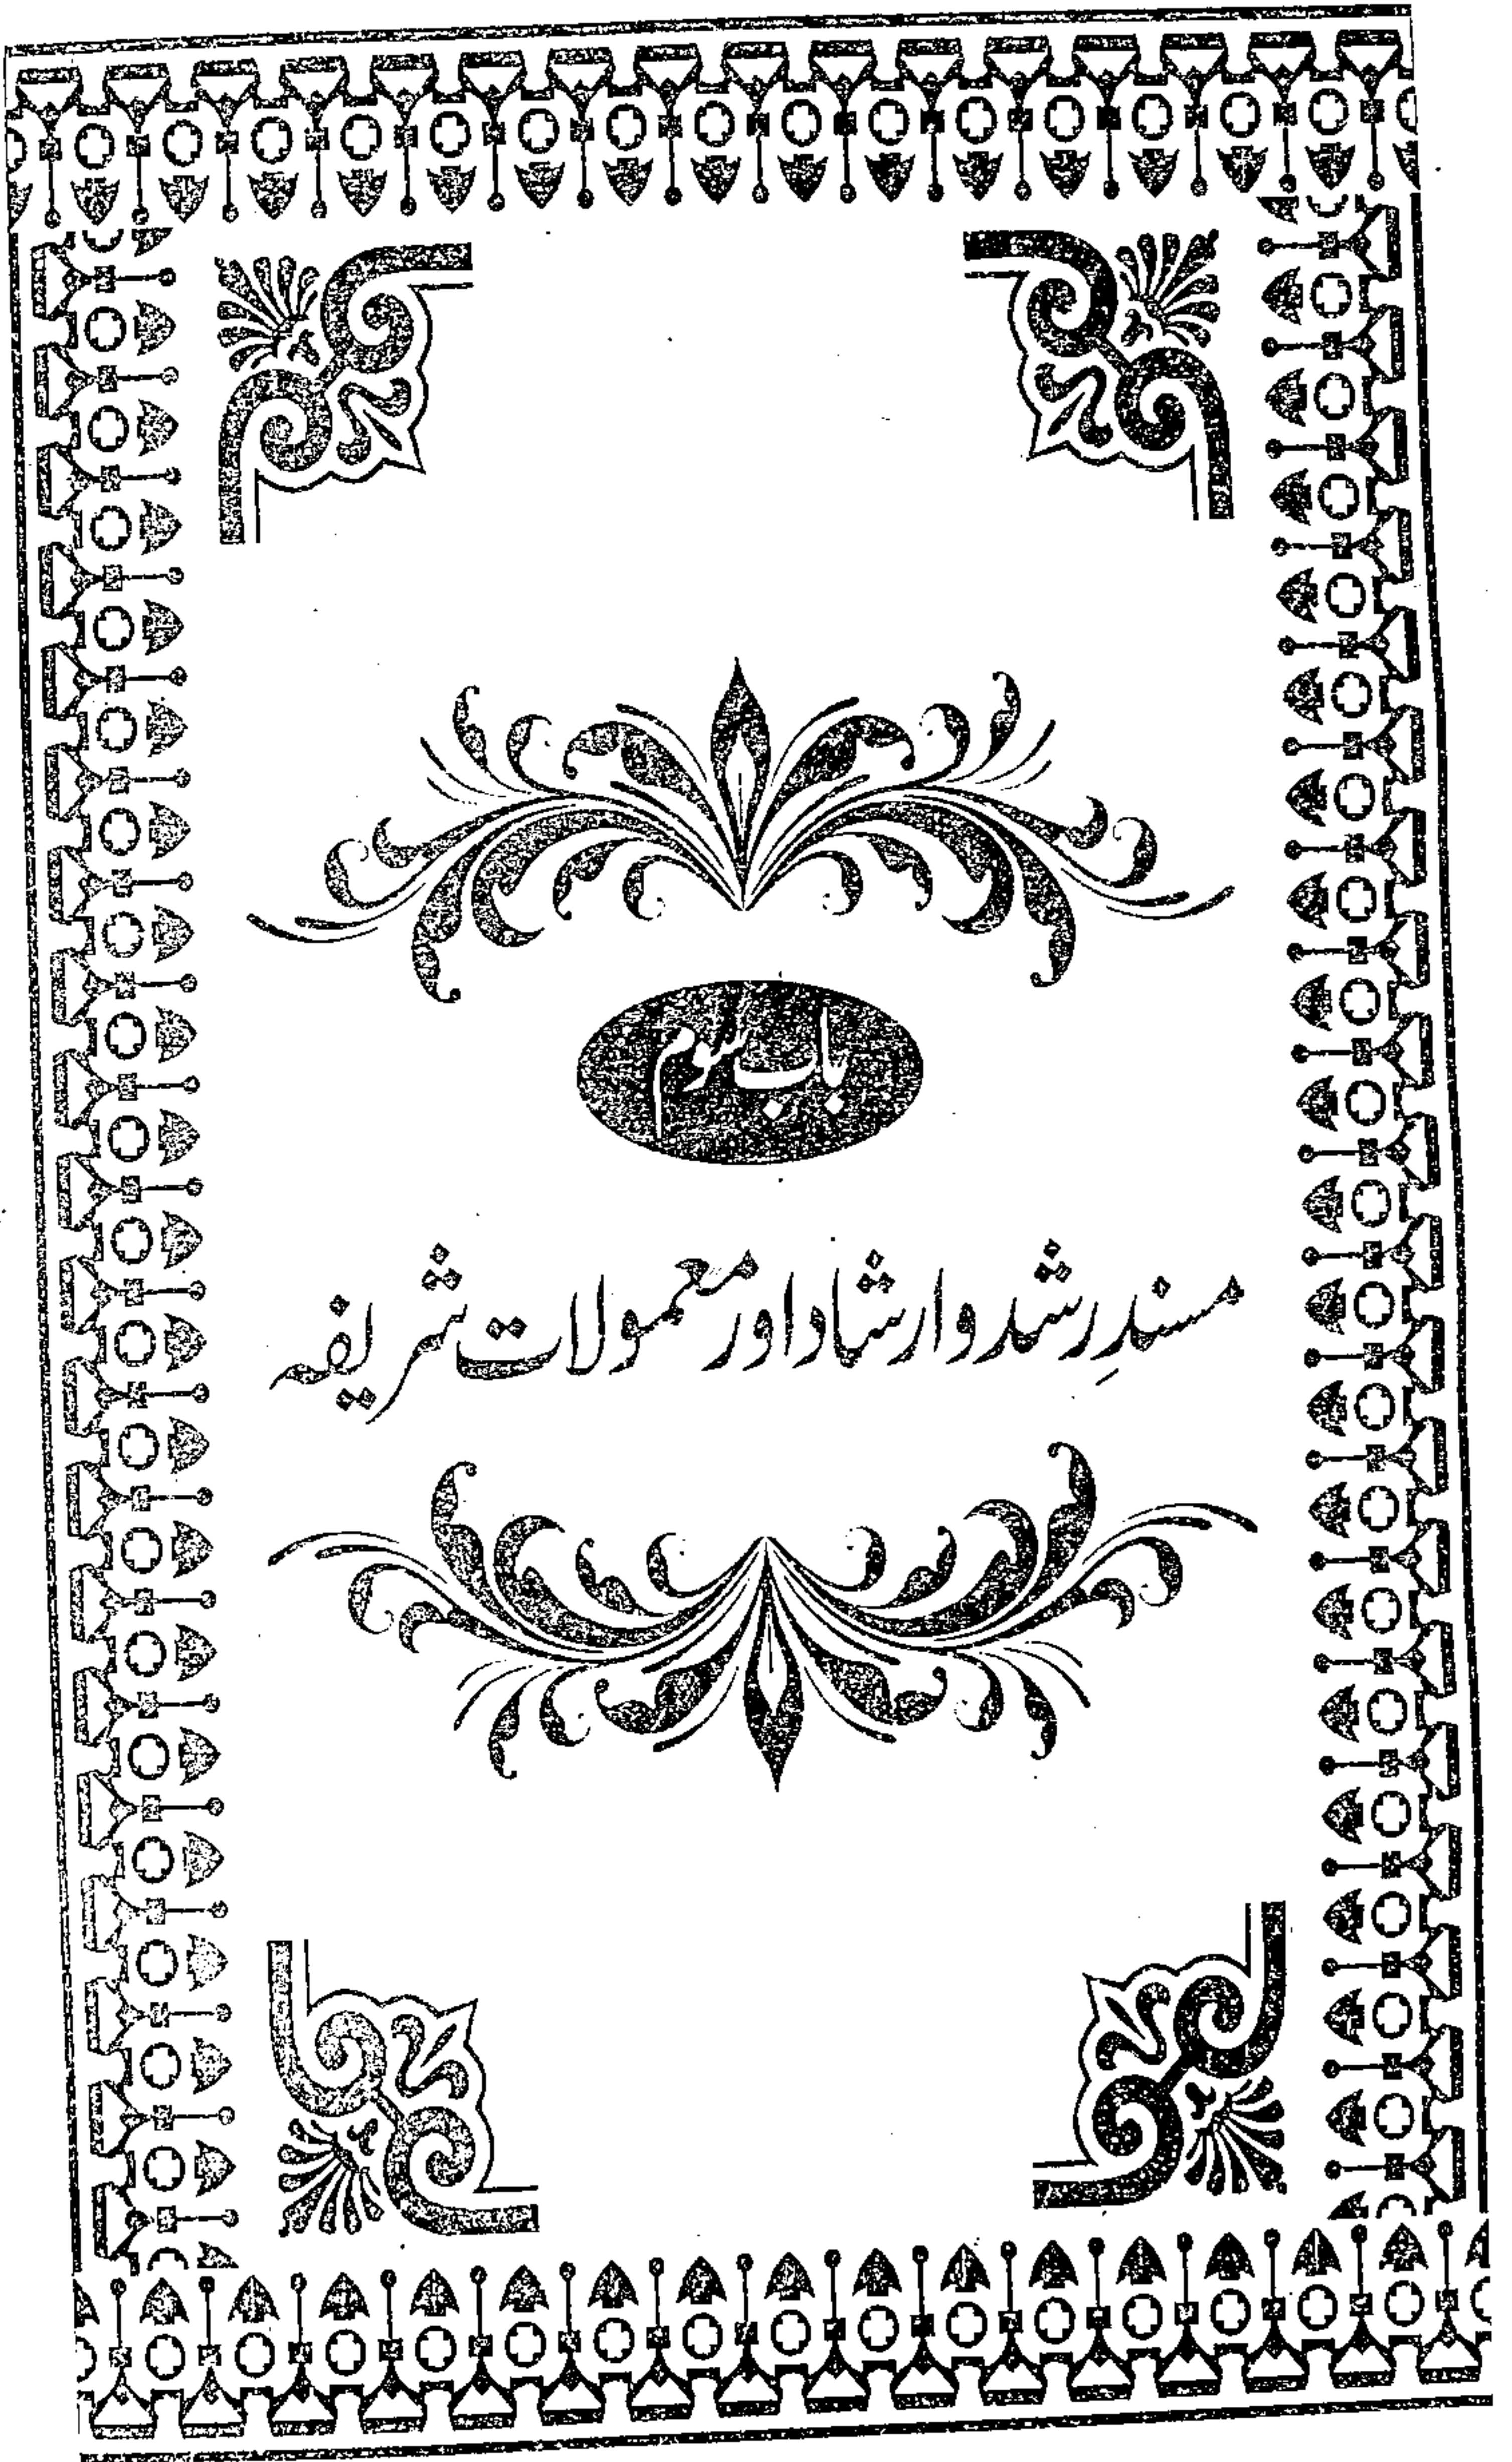 باب سوم
مسندِ رشد و ارشاد اور معمولات شریفہ